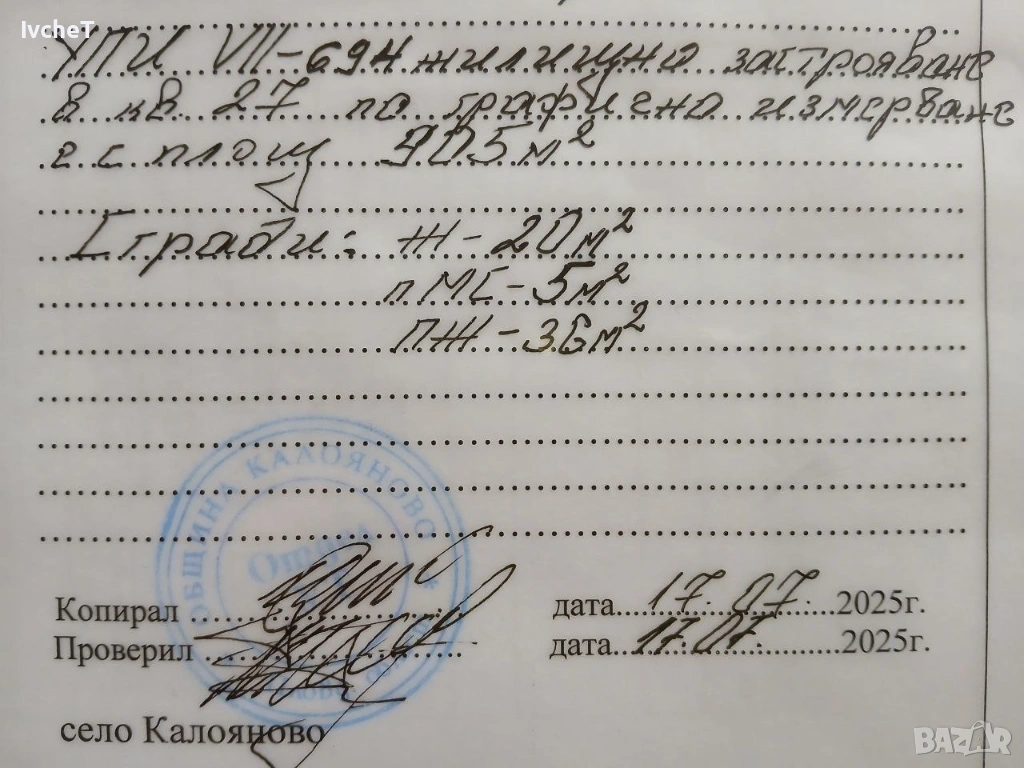 IvcheT
УПИ VII-694 жилищно застрояване
в кв. 27 по графично измерване
е с площ 905 м²
Сгради: Ж - 20 м²
п.МС - 5 м²
ПЖ - 36 м²
ОБЩИНА КАЛОЯНОВО *
Копирал ........ дата....17.07.....2025г.
Проверил ........ дата...17.07.......2025г.
село Калояново
BAZAR